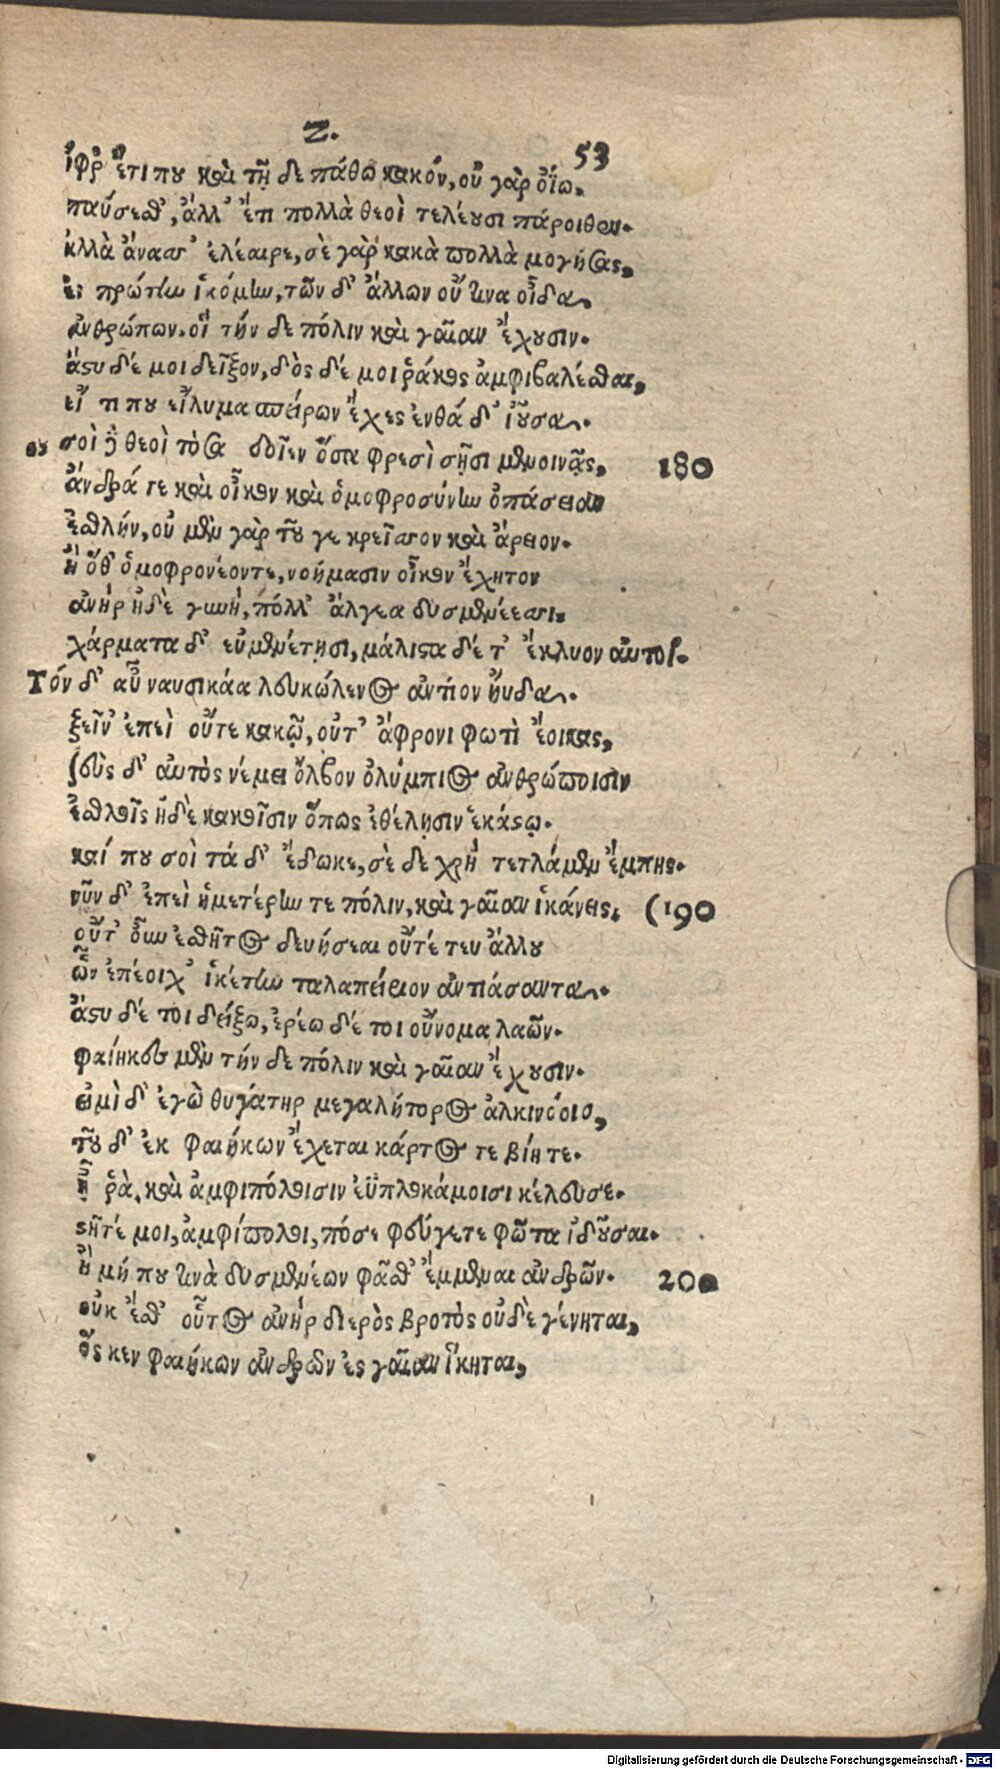 Ζ.
53
ὄφρ' ἔτι που καὶ τῇ δε πάθω κακόν, οὐ γὰρ ὀΐω,
παύσεσθ', ἀλλ' ἔτι πολλὰ θεοὶ τελέουσι πάροιθεν.
ἀλλὰ ἄνασσ' ἐλέαιρε, σὲ γὰρ κακὰ πολλὰ μογήσας,
ἐς πρώτην ἱκόμην, τῶν δ' ἄλλων οὔ τινα οἶδα,
ἀνθρώπων. οἳ τήν δε πόλιν καὶ γαῖαν ἔχουσιν.
ἄστυ δέ μοι δεῖξον, δὸς δέ μοι ῥάκος ἀμφιβαλέσθαι,
εἴ τι που εἴλυμα σπείρων ἔχες ἐνθά δ' ἰοῦσα.
ου σοὶ δὲ θεοὶ τόσα δοῖεν ὅσα φρεσὶ σῇσι μενοινᾷς, 180
ἄνδρά τε καὶ οἶκον καὶ ὁμοφροσύνην ὀπάσειαν
ἐσθλήν, οὐ μὲν γὰρ τοῦ γε κρεῖσσον καὶ ἄρειον.
ἢ ὅθ' ὁμοφρονέοντε, νοήμασιν οἶκον ἔχητον
ἀνὴρ ἠδὲ γυνή, πόλλ' ἄλγεα δυσμενέεσσι,
χάρματα δ' εὐμενέτῃσι, μάλιστα δέ τ' ἔκλυον αὐτοί.
Τόν δ' αὖ ναυσικάα λευκώλενος ἀντίον ηὔδα.
ξεῖν' ἐπεὶ οὔτε κακῷ, οὔτ' ἄφρονι φωτὶ ἔοικας,
ζεὺς δ' αὐτὸς νέμει ὄλβον ὀλύμπιος ἀνθρώποισιν
ἐσθλοῖς ἠδὲ κακοῖσιν ὅπως ἐθέλῃσιν ἑκάστῳ.
καί που σοὶ τά δ' ἔδωκε, σὲ δε χρὴ τετλάμεν ἔμπης.
νῦν δ' ἐπεὶ ἡμετέρην τε πόλιν, καὶ γαῖαν ἱκάνεις, (190
οὔτ' οὖν ἐσθῆτος δευήσεαι οὔτέ τευ ἄλλου
ὧν ἐπέοιχ' ἱκέτην ταλαπείριον ἀντιάσαντα.
ἄστυ δέ τοι δείξω, ἐρέω δέ τοι οὔνομα λαῶν.
φαίηκες μὲν τήν δε πόλιν καὶ γαῖαν ἔχουσιν.
εἰμὶ δ' ἐγὼ θυγάτηρ μεγαλήτορος ἀλκινόοιο,
τοῦ δ' ἐκ φαιήκων ἔχεται κάρτος τε βίη τε.
Ἦ ῥὰ, καὶ ἀμφιπόλοισιν ἐϋπλοκάμοισι κέλευσε.
στῆτέ μοι, ἀμφίπολοι, πόσε φεύγετε φῶτα ἰδοῦσαι.
ἦ μή που τινὰ δυσμενέων φᾶσθ' ἔμμεναι ἀνδρῶν. 200
οὐκ ἔσθ' οὗτος ἀνὴρ διερὸς βροτὸς οὐδὲ γένηται,
ὅς κεν φαιήκων ἀνδρῶν ἐς γαῖαν ἵκηται,
Digitalisierung gefördert durch die Deutsche Forschungsgemeinschaft - DFG